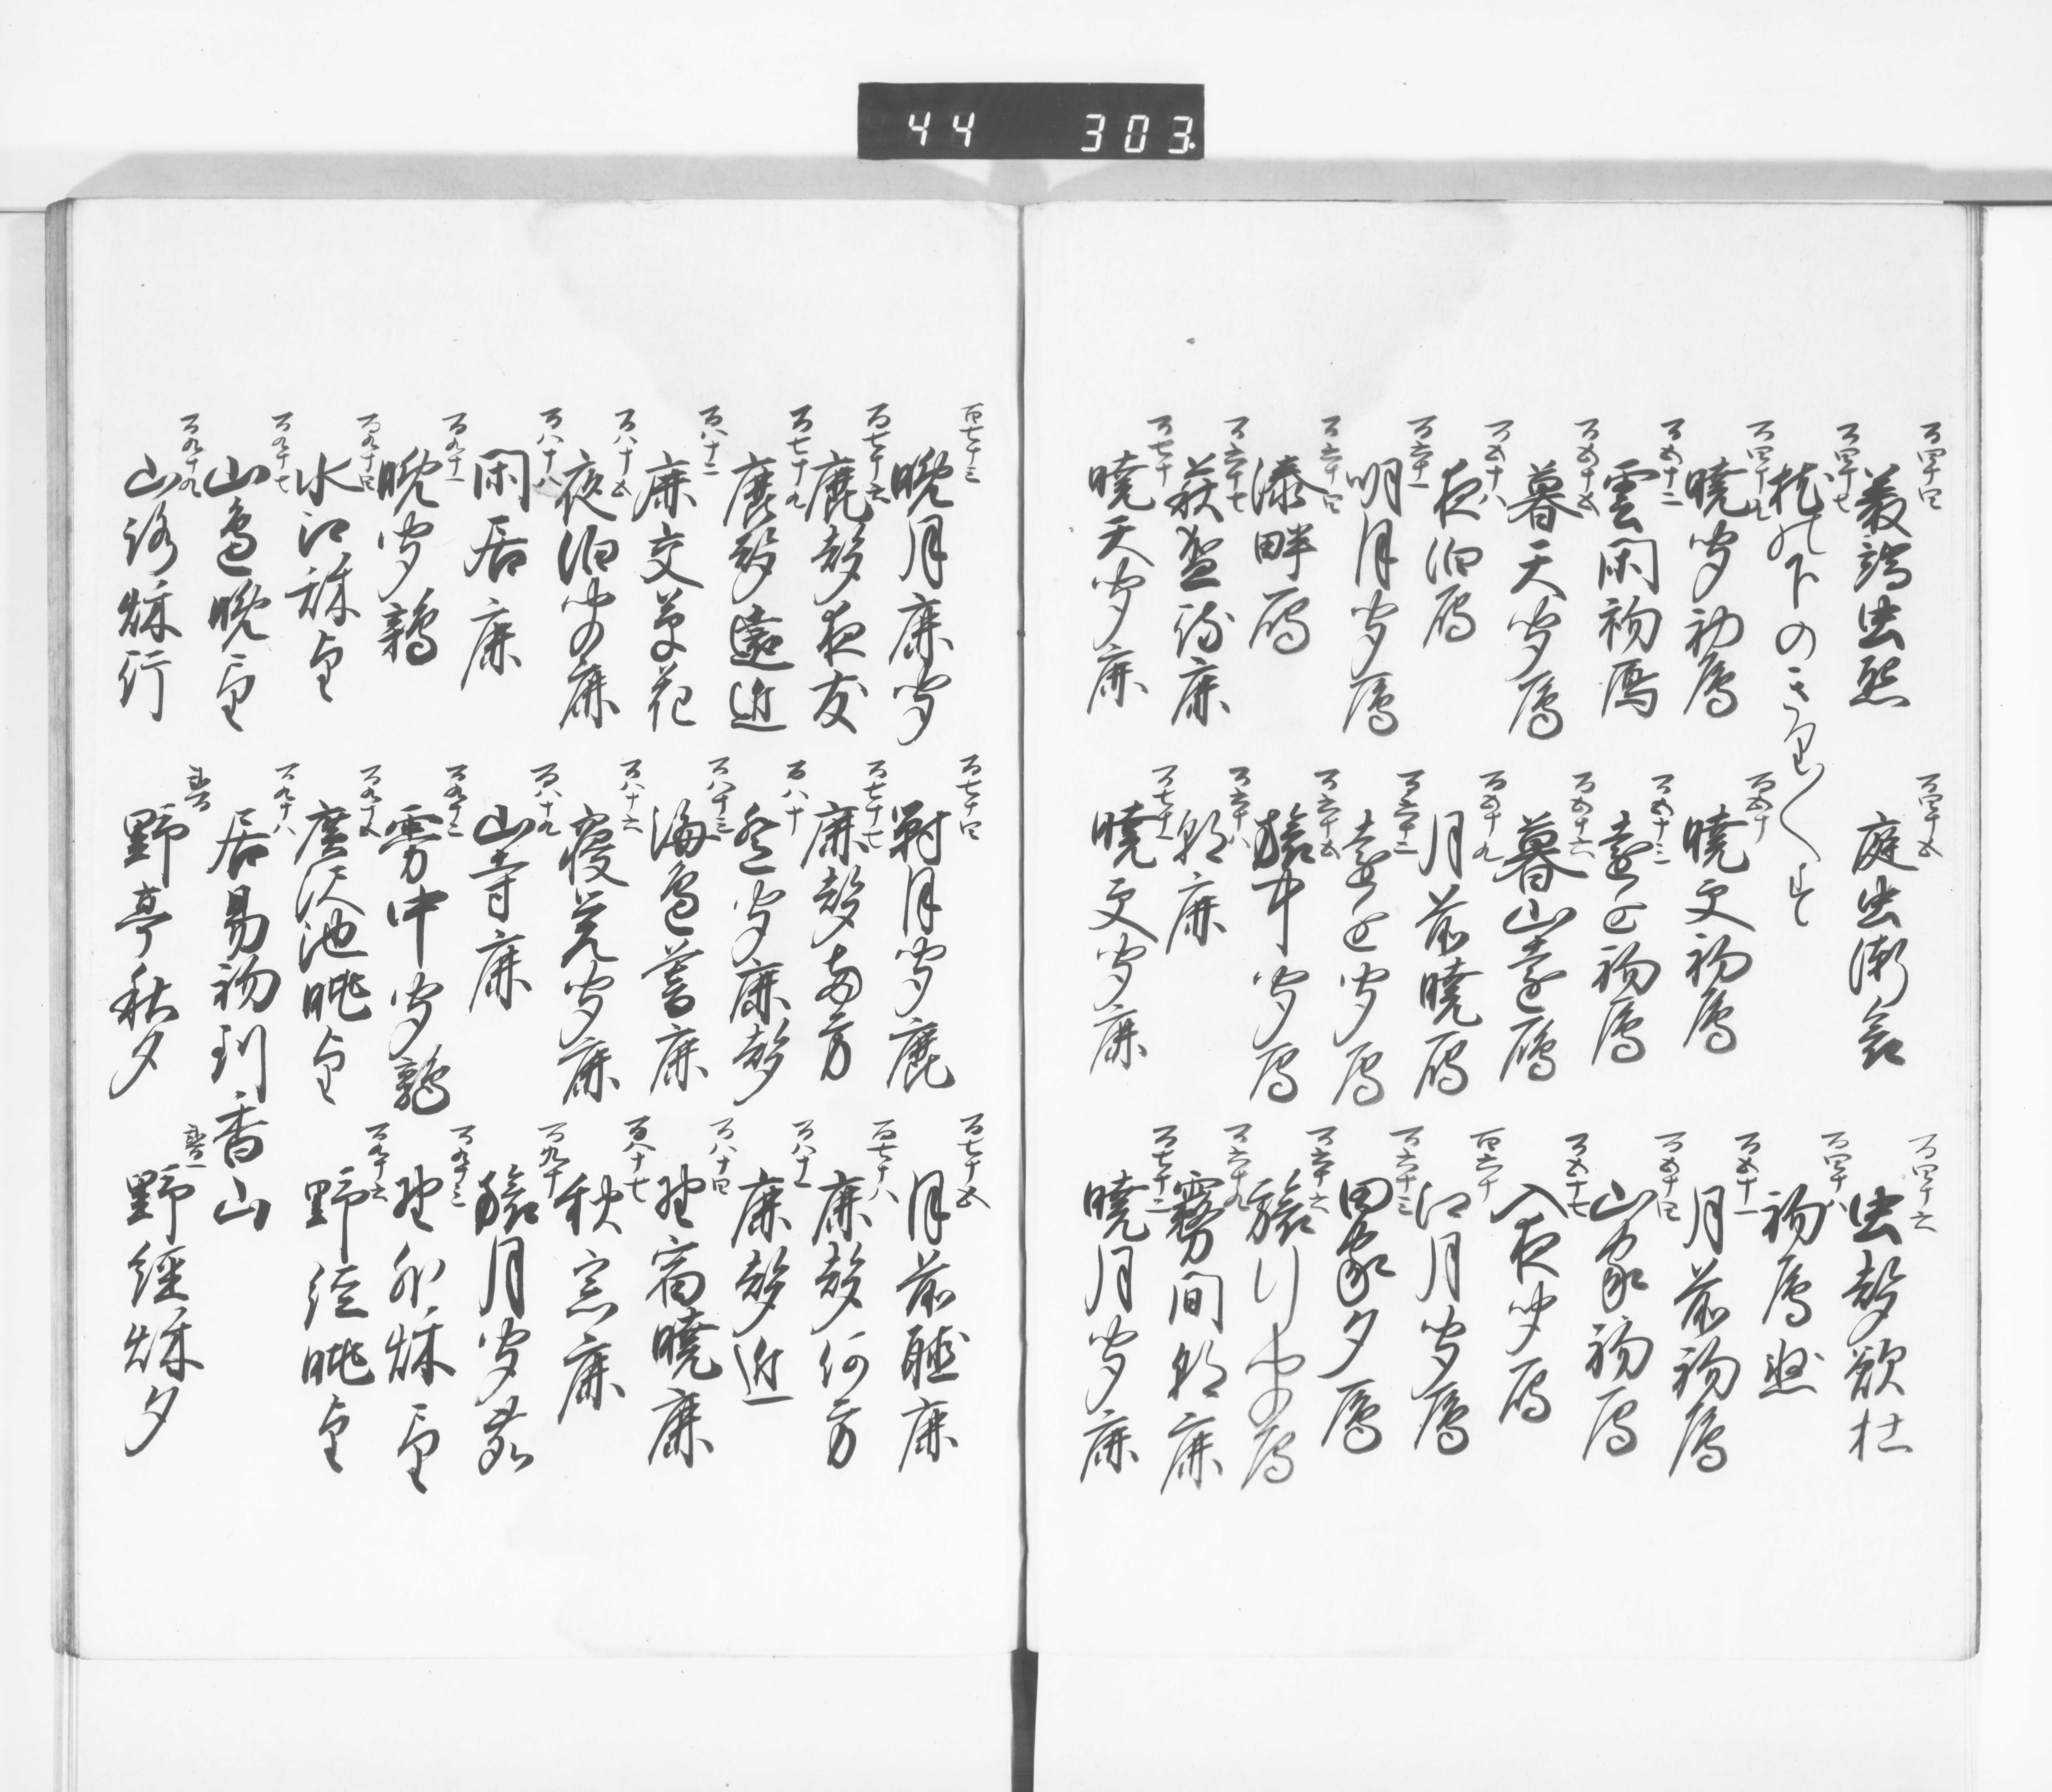 百四十四
叢端虫怨
百四十五
庭虫漸
百四十六
虫声欲
百四十七
枕の下のきり〱す
百四十八
初雁
百四十九
暁聞初雁
百五十
暁更初雁
百五十一
月前初雁
百五十二
雲間初雁
百五十三
遠近初雁
百五十四
山家初雁
百五十五
暮天聞雁
百五十六
暮山遠雁
百五十七
入夜聞雁
百五十八
夜泊雁
百五十九
月前暁雁
百六十
江月聞雁
百六十一
明月聞雁
百六十二
遠近聞雁
百六十三
田家夕雁
百六十四
湊畔雁
百六十五
旅中聞雁
百六十六
旅行聞雁
百六十七
萩盛待鹿
百六十八
朝鹿
百六十九
霧間朝鹿
百七十
暁天聞鹿
百七十一
暁更聞鹿
百七十二
暁月聞鹿
百七十三
晩月鹿聞
百七十四
対月聞鹿
百七十五
月前聴鹿
百七十六
鹿声夜友
百七十七
鹿声両方
百七十八
鹿声何方
百七十九
鹿声遠近
百八十
聞鹿声
百八十一
鹿声近
百八十二
鹿交草花
百八十三
海辺暮鹿
百八十四
野宿暁鹿
百八十五
夜泊聞鹿
百八十六
寝覚聞鹿
百八十七
秋窓鹿
百八十八
閑居鹿
百八十九
山寺鹿
百九十
旅月聞
百九十一
晩聞鶉
百九十二
霧中聞鶉
百九十三
野外秋望
百九十四
水江秋望
百九十五
広沢池眺望
百九十六
野径眺望
百九十七
山色晩望
百九十八
居易初到香山
百九十九
山路秋行
弐百
野亭秋夕
弐百一
野経秋夕
44 303